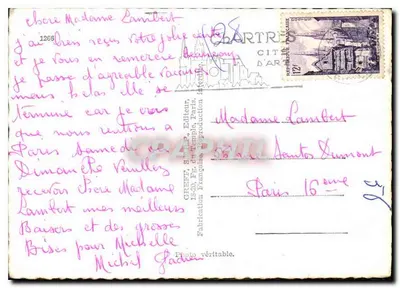 Chère Madame Lambert
j'ai bien reçus votre jolie carte
et je vous en remercie beaucoup
je passe d'agréable vacances
mais helas elle se
termine car je crois
que nous rentrons a
Paris samedi ou
Dimanche Veuillez
recevoir Chère Madame
Lambert mes meilleurs
Baisers et des grosses
Bises pour Michelle
Michel
1268
CHARTRES
CITÉ
D'ART
12F
Madame Lambert
rue Santos Dumont
Paris 16eme
Editeur,
Paris.
Fabrication Française - Reproduction interdite.
Photo véritable.